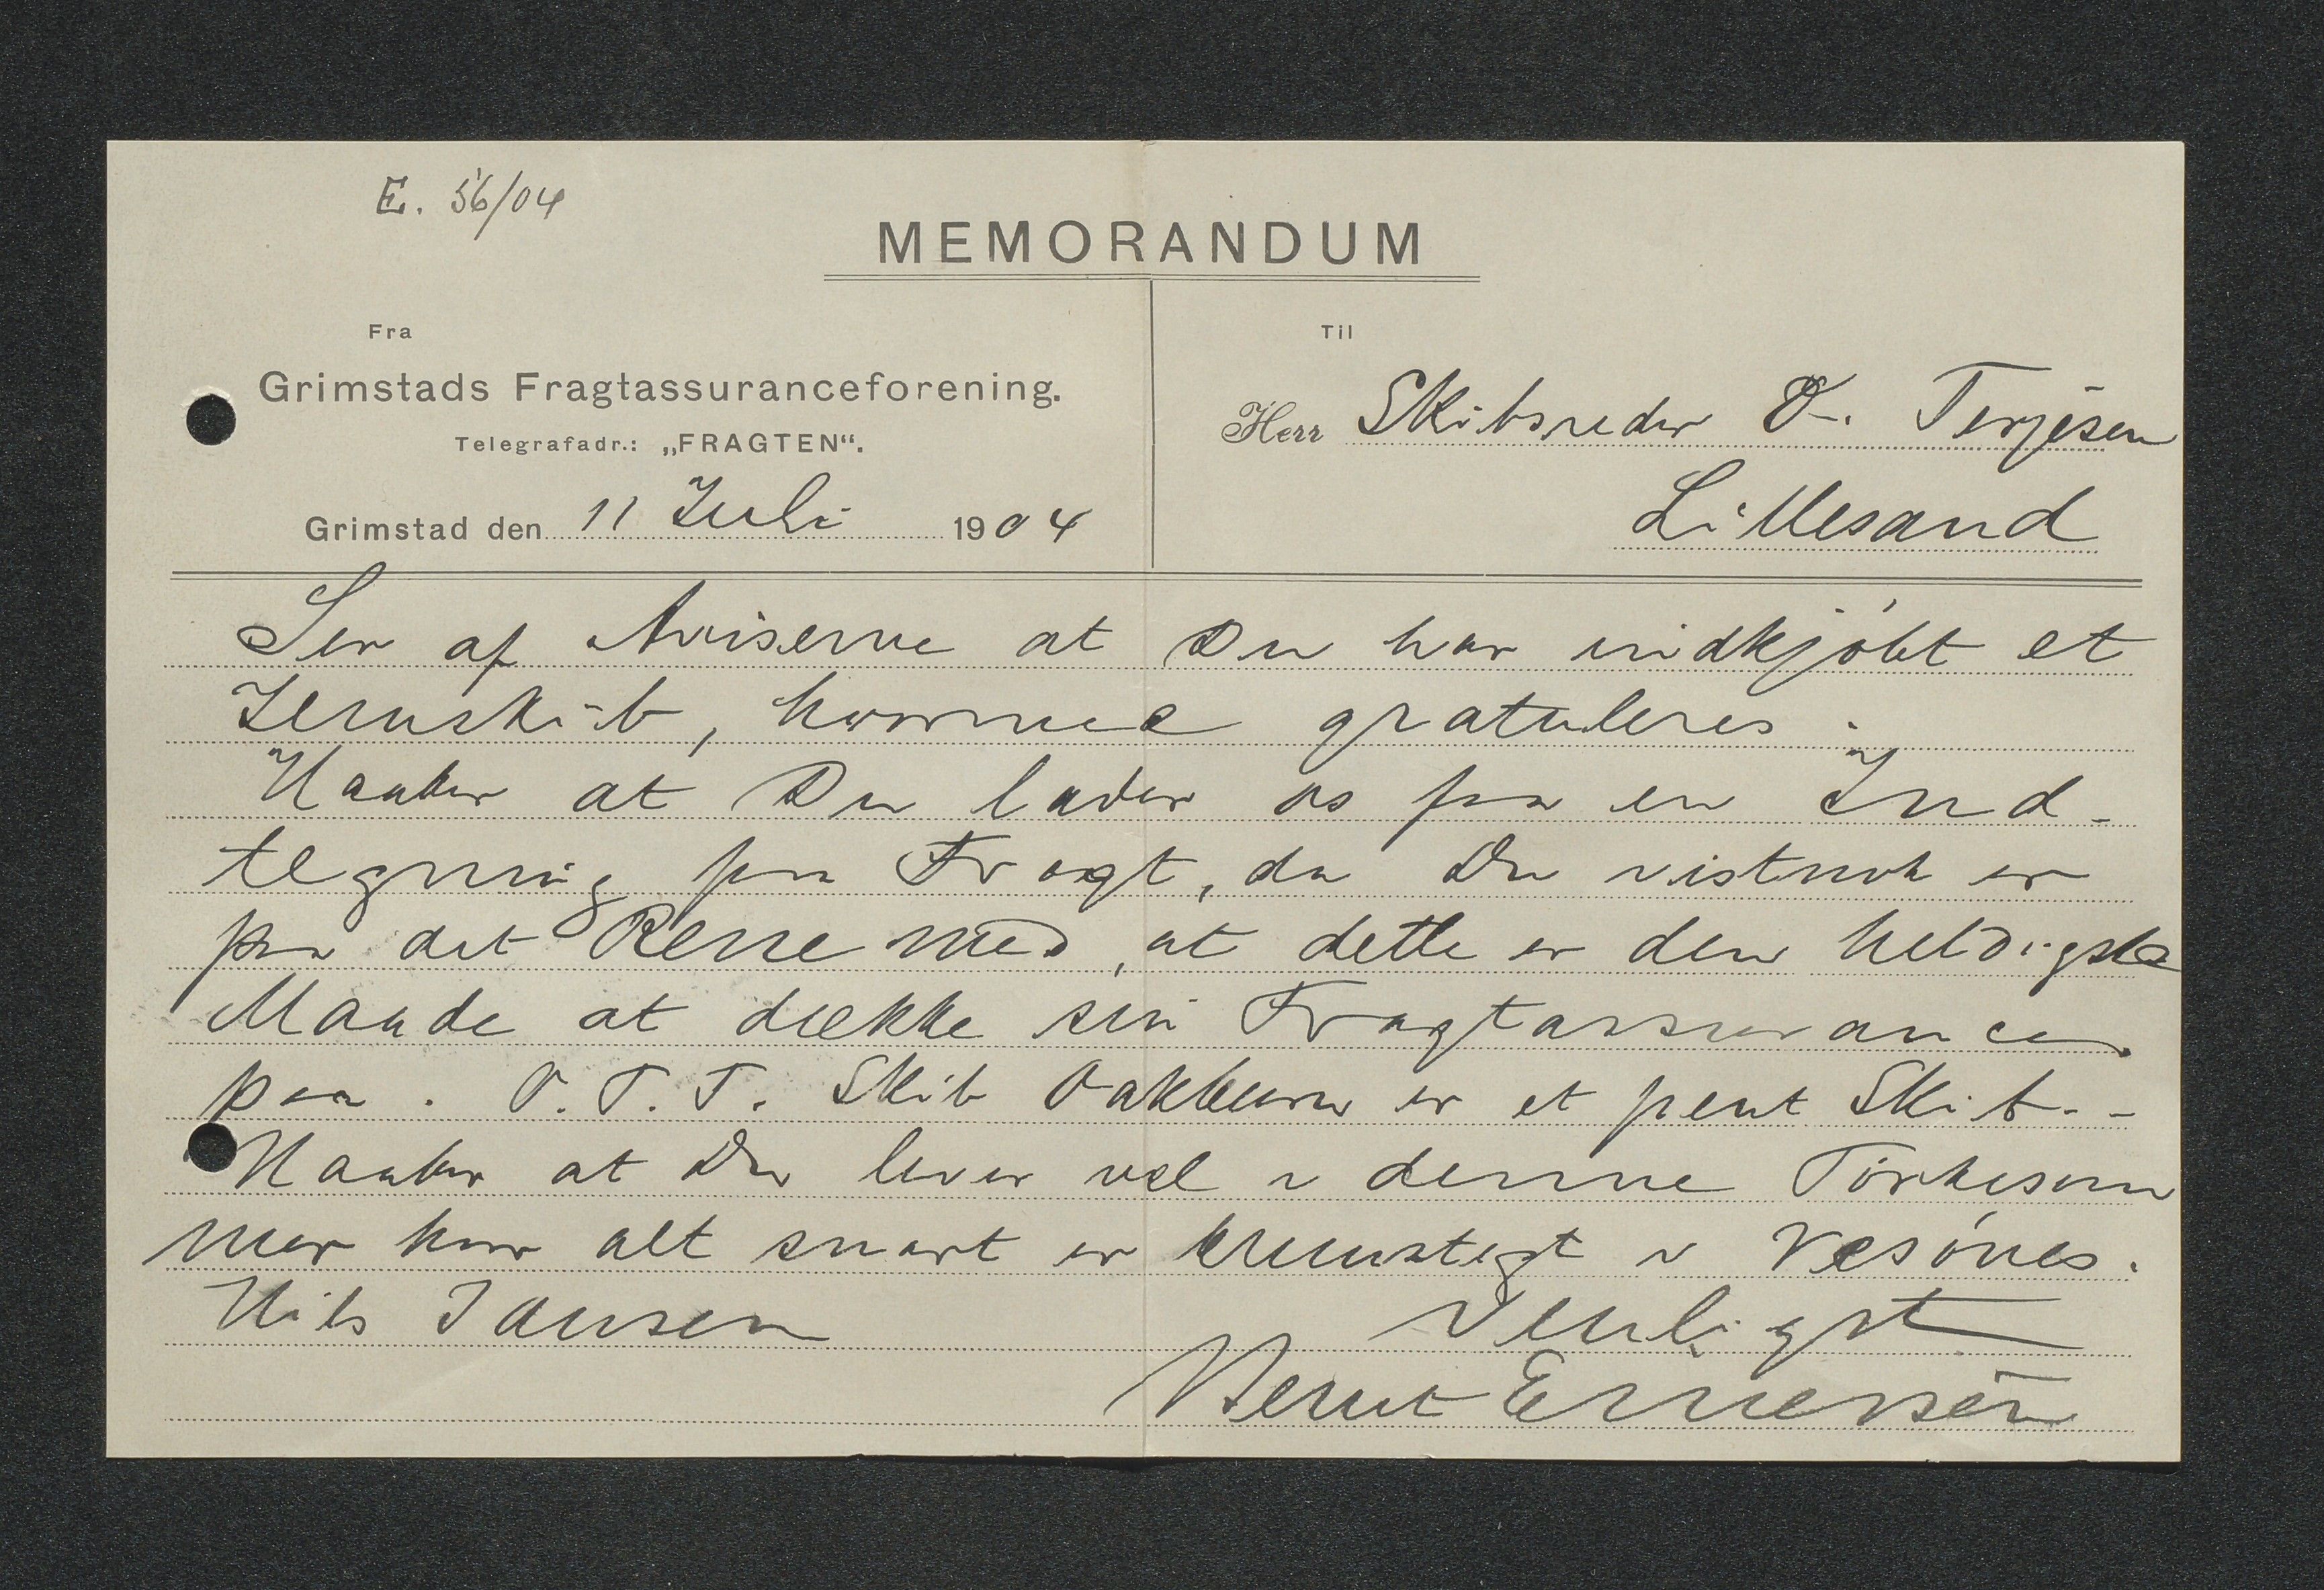 E. 56/04
MEMORANDUM
Fra
Grimstads Fragtassuranceforening.
Telegrafadr.: „FRAGTEN“.
Grimstad den 11 Juli 1904
Til
Herr Skibsreder O. Terjesen
Lillesand
Ser af Aviserne at Du har indkjóbt et
Jernskib, hvormed gratuleres.
Haaber at Du lader os faa en Ind-
tegning paa Fragt, da Du vistnok er
paa det Rene med, at dette er den heldigste
Maade at dække sin Fragtassurance
paa. O. T. T. Skib Oakburn er et pent Skib. -
Haaber at Du lever vel i denne Tórkesom
mer hvor alt snart er brunstegt i Vesónes.
Nils Jansen
Venligst
Bernt